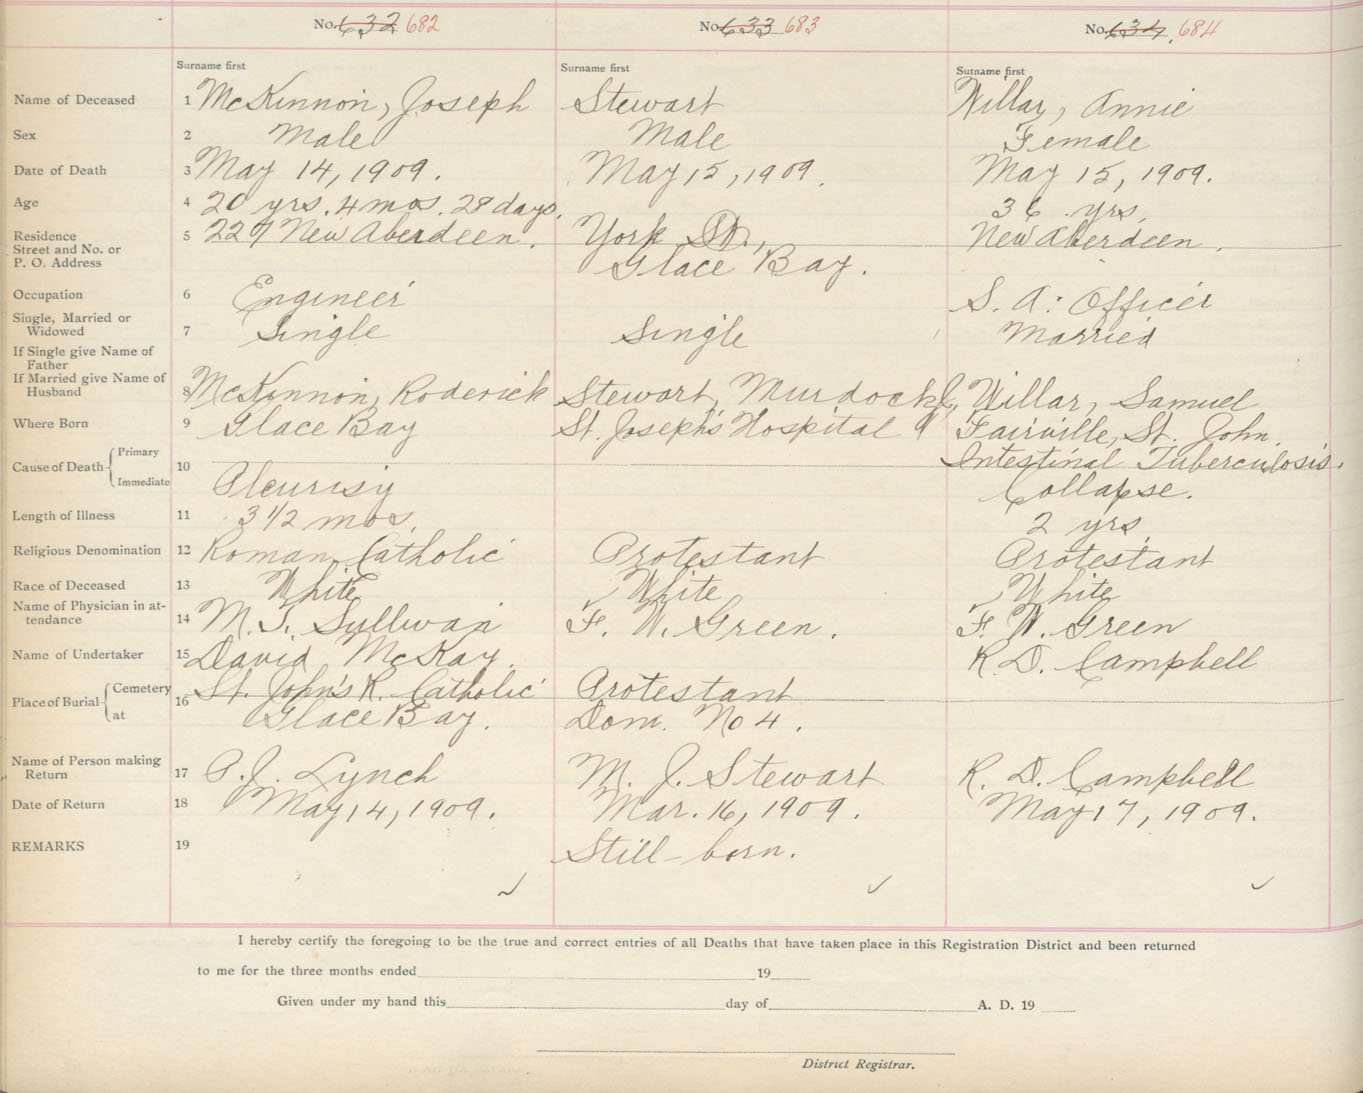 No. 632 682 No. 633 683 No. 634 684
Surname first Surname first Surname first
Name of Deceased 1 McKinnon, Joseph Stewart Willar, Annie
Sex 2 Male Male Female
Date of Death 3 May 14, 1909. May 15, 1909. May 15, 1909.
Age 4 20 yrs. 4 mos. 28 days. 36 yrs.
Residence
Street and No. or
P. O. Address 5 227 New Aberdeen. York St., New Aberdeen.
Glace Bay.
Occupation 6 Engineer S. A. Officer
Single, Married or
Widowed 7 Single Single Married
If Single give Name of
Father
If Married give Name of
Husband 8 McKinnon, Roderick Stewart, Murdock J. Willar, Samuel
Where Born 9 Glace Bay St. Joseph's Hospital Fairville, St. John.
Cause of Death Primary 10 Intestinal Tuberculosis.
Immediate Pleurisy Collapse.
Length of Illness 11 3 1/2 mos. 2 yrs
Religious Denomination 12 Roman Catholic Protestant Protestant
Race of Deceased 13 White White White
Name of Physician in at-
tendance 14 M. T. Sullivan F. W. Green. F. W. Green
Name of Undertaker 15 David McKay. R. D. Campbell
Place of Burial Cemetery 16 St. John's R. Catholic Protestant
at Glace Bay. Dom. No 4.
Name of Person making
Return 17 P. J. Lynch M. J. Stewart R. D. Campbell
Date of Return 18 May 14, 1909. Mar. 16, 1909. May 17, 1909.
REMARKS 19 Still-born.
I hereby certify the foregoing to be the true and correct entries of all Deaths that have taken place in this Registration District and been returned
to me for the three months ended 19
Given under my hand this day of A. D. 19
District Registrar.